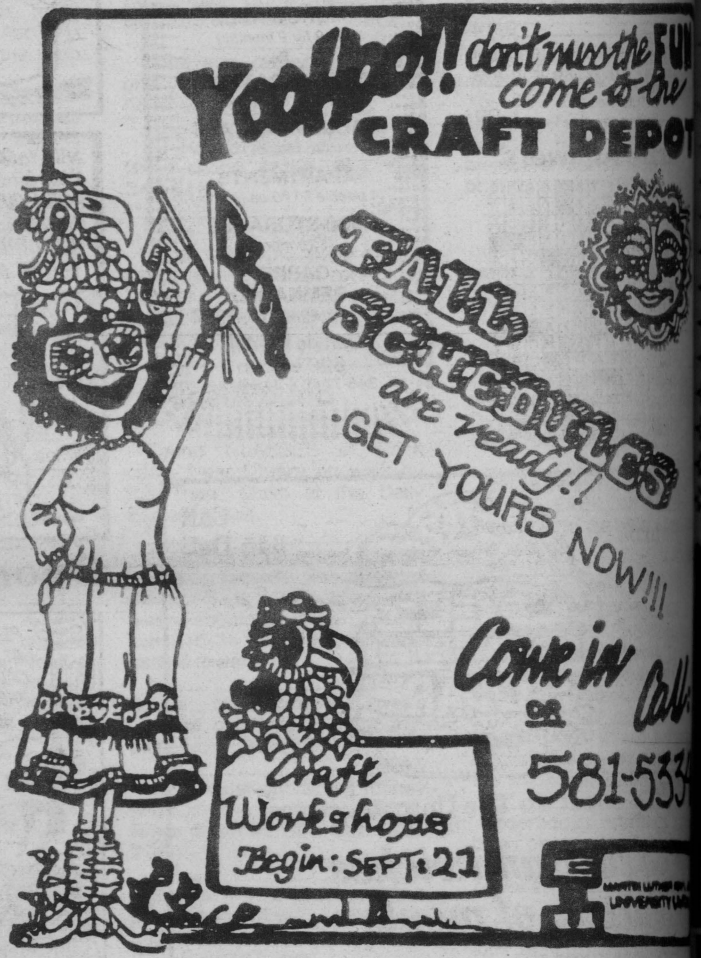 YooHoo!! don't miss the FUN
come to the
CRAFT DEPOT
FALL
SCHEDULES
are ready!!
GET YOURS NOW!!!
Come in
OR
Call
581-5334
Craft
Workshops
Begin: SEPT: 21
MARTIN LUTHER
UNIVERSITY